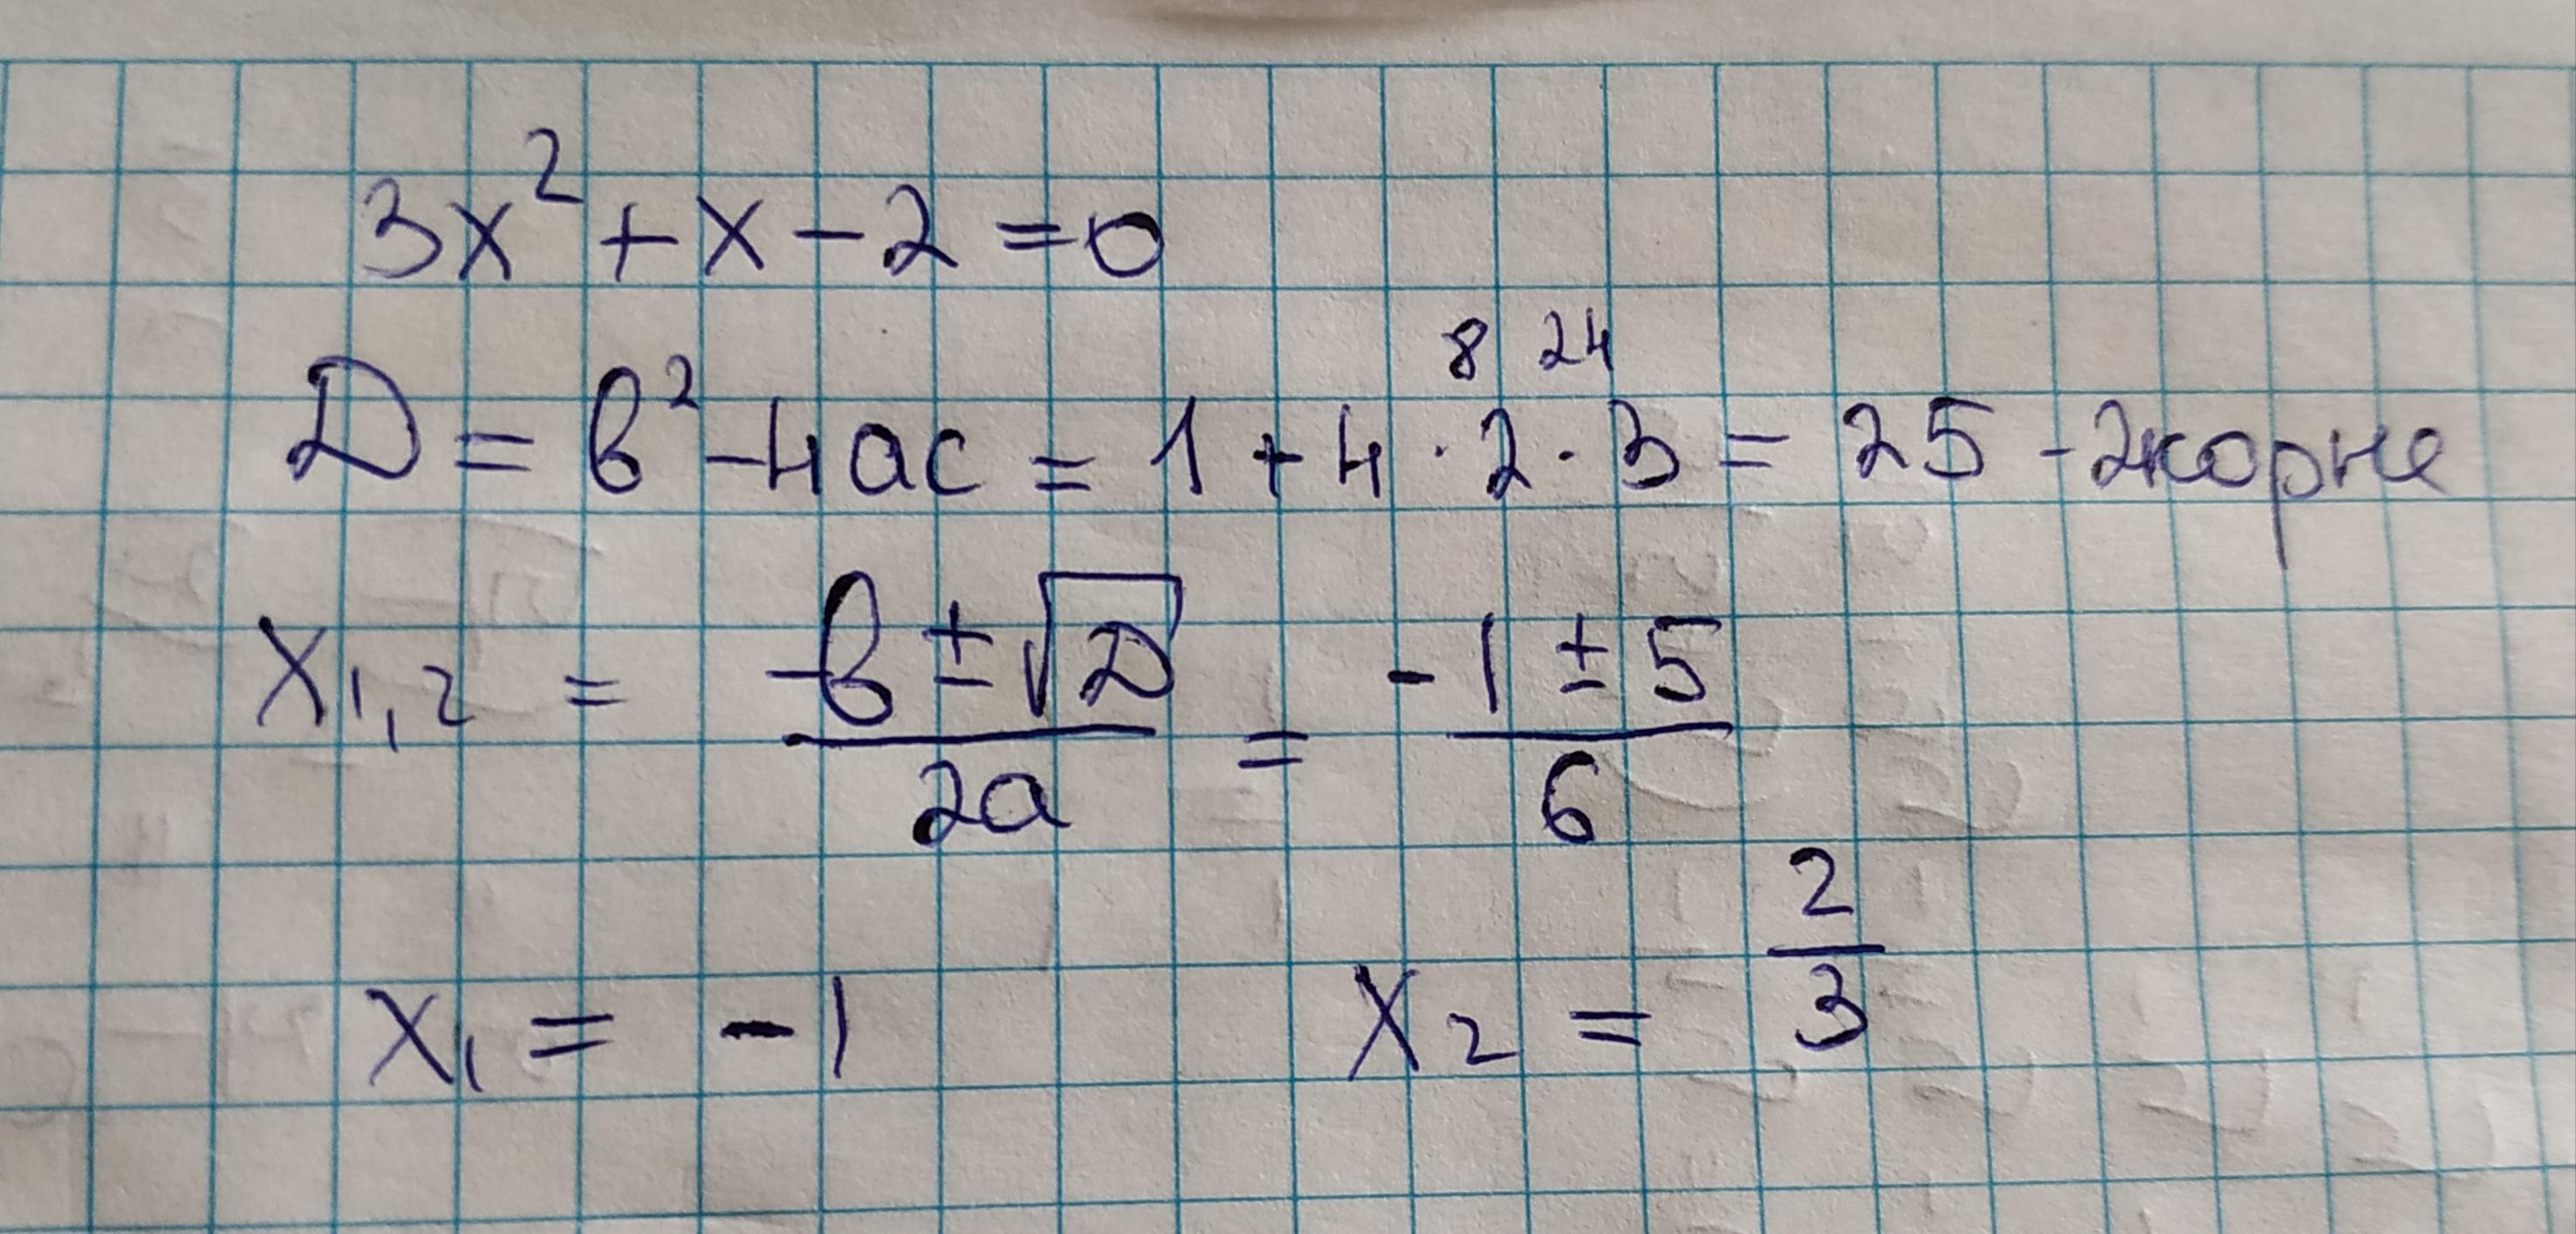 3x² + x - 2 = 0
8 24
D = b² - 4ac = 1 + 4 · 2 · 3 = 25 - 2 корне
x₁,₂ = (-b ± √D)/(2a) = (-1 ± 5)/6
x₁ = -1 x₂ = 2/3